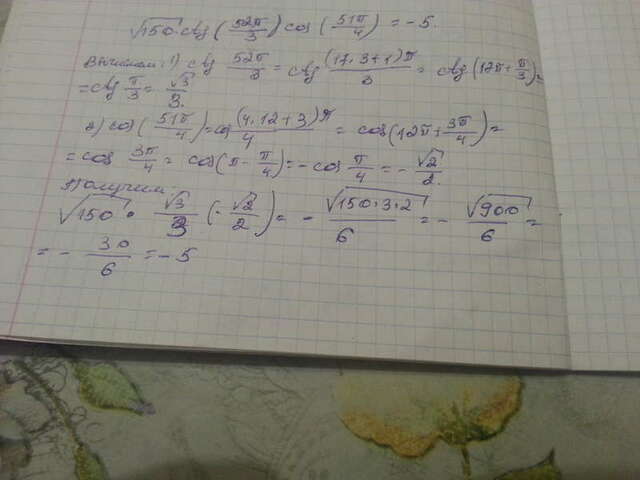 √150 · ctg(52π/3) cos(51π/4) = -5.
Вычислим: 1) ctg 52π/3 = ctg (17·3+1)π/3 = ctg(17π+π/3) =
= ctg π/3 = √3/3.
2) cos(51π/4) = cos (4·12+3)π/4 = cos(12π+3π/4) =
= cos 3π/4 = cos(π - π/4) = - cos π/4 = - √2/2.
Получим:
√150 · √3/3 (-√2/2) = - √150·3·2/6 = - √900/6 =
= - 30/6 = -5